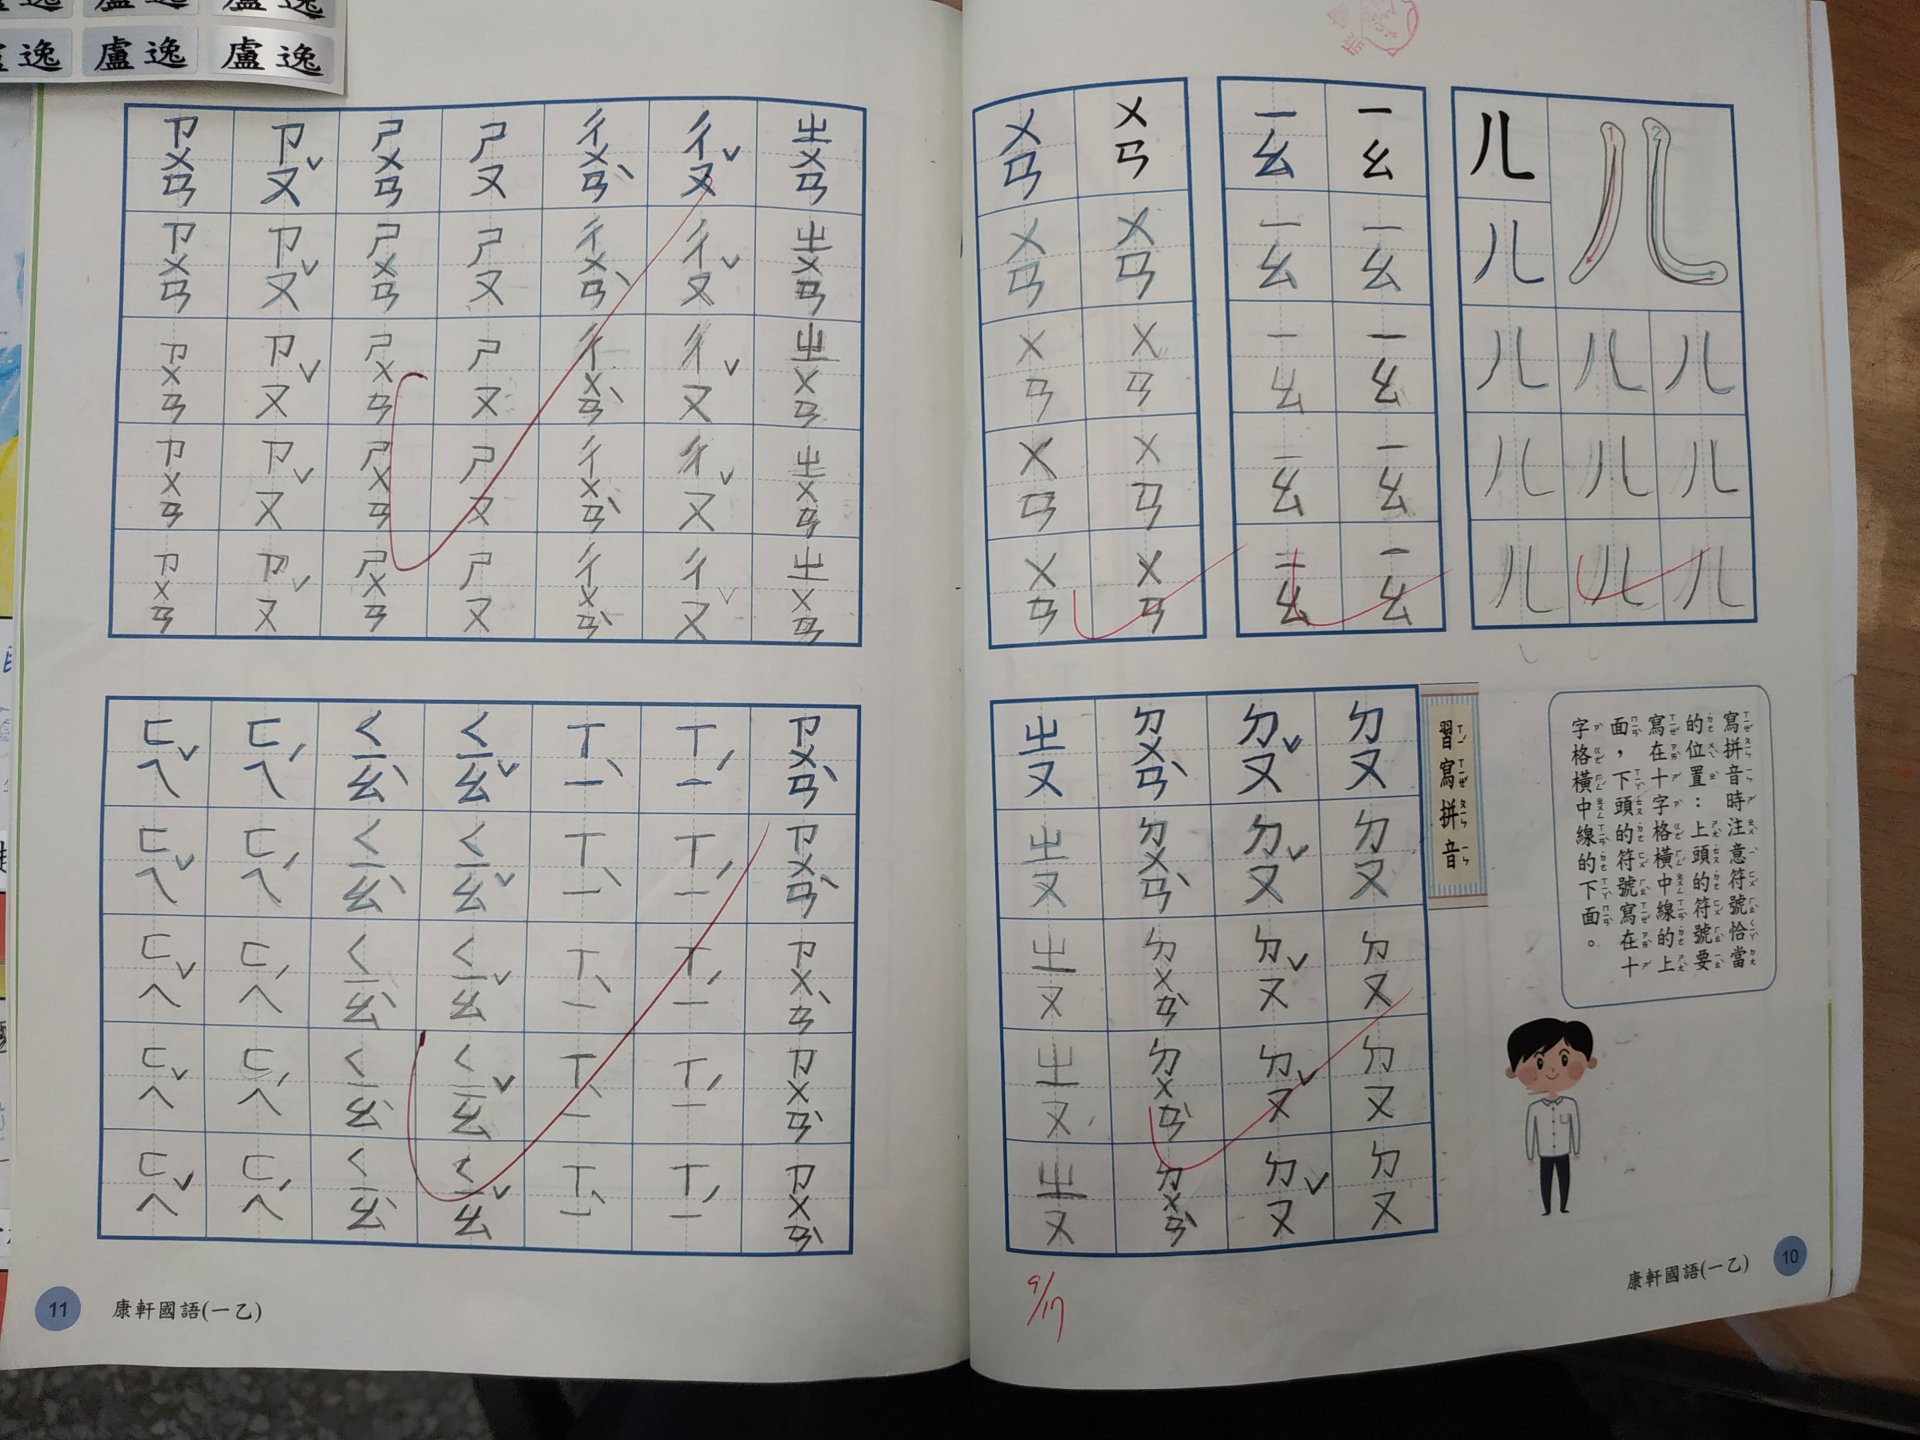 ㄦ
ㄦ ㄦ
ㄦ ㄦ ㄦ
ㄦ ㄦ ㄦ
ㄦ ㄦ ㄦ
ㄧㄠ ㄧㄠ ㄧㄠ ㄧㄠ ㄧㄠ
ㄧㄠ ㄧㄠ ㄧㄠ ㄧㄠ ㄧㄠ
ㄨㄢ ㄨㄢ ㄨㄢ ㄨㄢ ㄨㄢ
ㄨㄢ ㄨㄢ ㄨㄢ ㄨㄢ ㄨㄢ
寫拼音時注意符號恰當
的位置:上頭的符號要
寫在十字格橫中線的上
面,下頭的符號寫在十
字格橫中線的下面。
習寫拼音
ㄉㄡ ㄉㄡ ㄉㄡ ㄉㄡ ㄉㄡ
ㄉㄡˇ ㄉㄡˇ ㄉㄡˇ ㄉㄡˇ ㄉㄡˇ
ㄉㄨㄢˋ ㄉㄨㄢˋ ㄉㄨㄢˋ ㄉㄨㄢˋ ㄉㄨㄢˋ
ㄓㄡ ㄓㄡ ㄓㄡ ㄓㄡ ㄓㄡ
9/17
康軒國語(一乙)
10
盧逸
盧逸
ㄓㄨㄢ ㄓㄨㄢ ㄓㄨㄢ ㄓㄨㄢ ㄓㄨㄢ
ㄔㄡˇ ㄔㄡˇ ㄔㄡˇ ㄔㄡˇ ㄔㄡˇ
ㄔㄨㄢˋ ㄔㄨㄢˋ ㄔㄨㄢˋ ㄔㄨㄢˋ ㄔㄨㄢˋ
ㄕㄡ ㄕㄡ ㄕㄡ ㄕㄡ ㄕㄡ
ㄕㄨㄢ ㄕㄨㄢ ㄕㄨㄢ ㄕㄨㄢ ㄕㄨㄢ
ㄗㄡˇ ㄗㄡˇ ㄗㄡˇ ㄗㄡˇ ㄗㄡˇ
ㄗㄨㄢ ㄗㄨㄢ ㄗㄨㄢ ㄗㄨㄢ ㄗㄨㄢ
ㄗㄨㄢˋ ㄗㄨㄢˋ ㄗㄨㄢˋ ㄗㄨㄢˋ ㄗㄨㄢˋ
ㄒㄧˊ ㄒㄧˊ ㄒㄧˊ ㄒㄧˊ ㄒㄧˊ
ㄒㄧˋ ㄒㄧˋ ㄒㄧˋ ㄒㄧˋ ㄒㄧˋ
ㄑㄧㄠˇ ㄑㄧㄠˇ ㄑㄧㄠˇ ㄑㄧㄠˇ ㄑㄧㄠˇ
ㄑㄧㄠˋ ㄑㄧㄠˋ ㄑㄧㄠˋ ㄑㄧㄠˋ ㄑㄧㄠˋ
ㄈㄟˊ ㄈㄟˊ ㄈㄟˊ ㄈㄟˊ ㄈㄟˊ
ㄈㄟˇ ㄈㄟˇ ㄈㄟˇ ㄈㄟˇ ㄈㄟˇ
11
康軒國語(一乙)